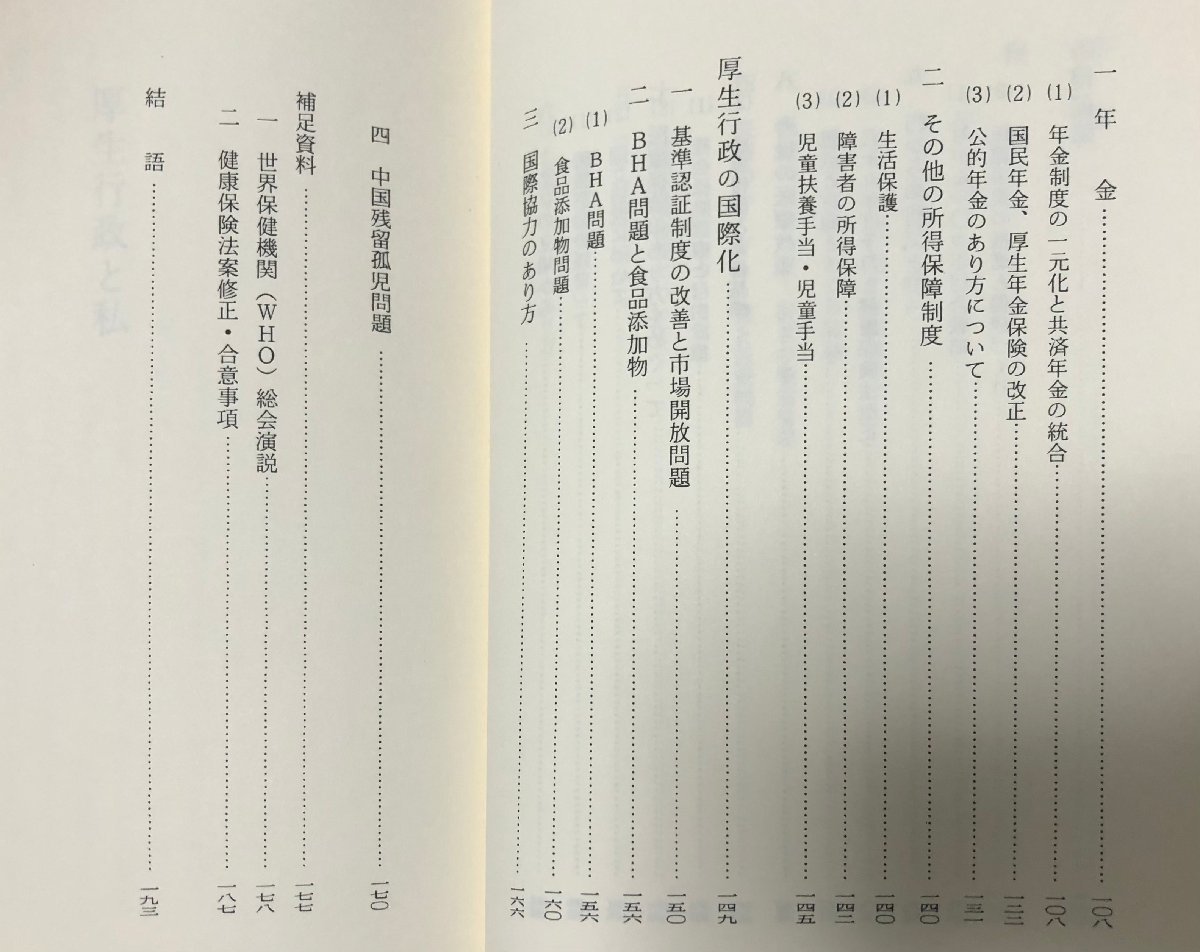 一 年 金……一〇八
(1) 年金制度の一元化と共済年金の統合……一〇八
(2) 国民年金、厚生年金保険の改正……一二二
(3) 公的年金のあり方について……一三一
二 その他の所得保障制度……一四〇
(1) 生活保護……一四〇
(2) 障害者の所得保障……一四二
(3) 児童扶養手当・児童手当……一四五
厚生行政の国際化……一四九
一 基準認証制度の改善と市場開放問題……一五〇
二 BHA問題と食品添加物……一五六
(1) BHA問題……一五六
(2) 食品添加物問題……一六〇
三 国際協力のあり方……一六六
四 中国残留孤児問題……一七〇
補足資料……一七七
一 世界保健機関（WHO）総会演説……一七八
二 健康保険法案修正・合意事項……一八七
結 語……一九三